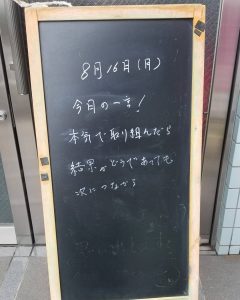 8月16日(月)
今日の一言!
本気で取り組んだら
結果がどうであっても
次につながる